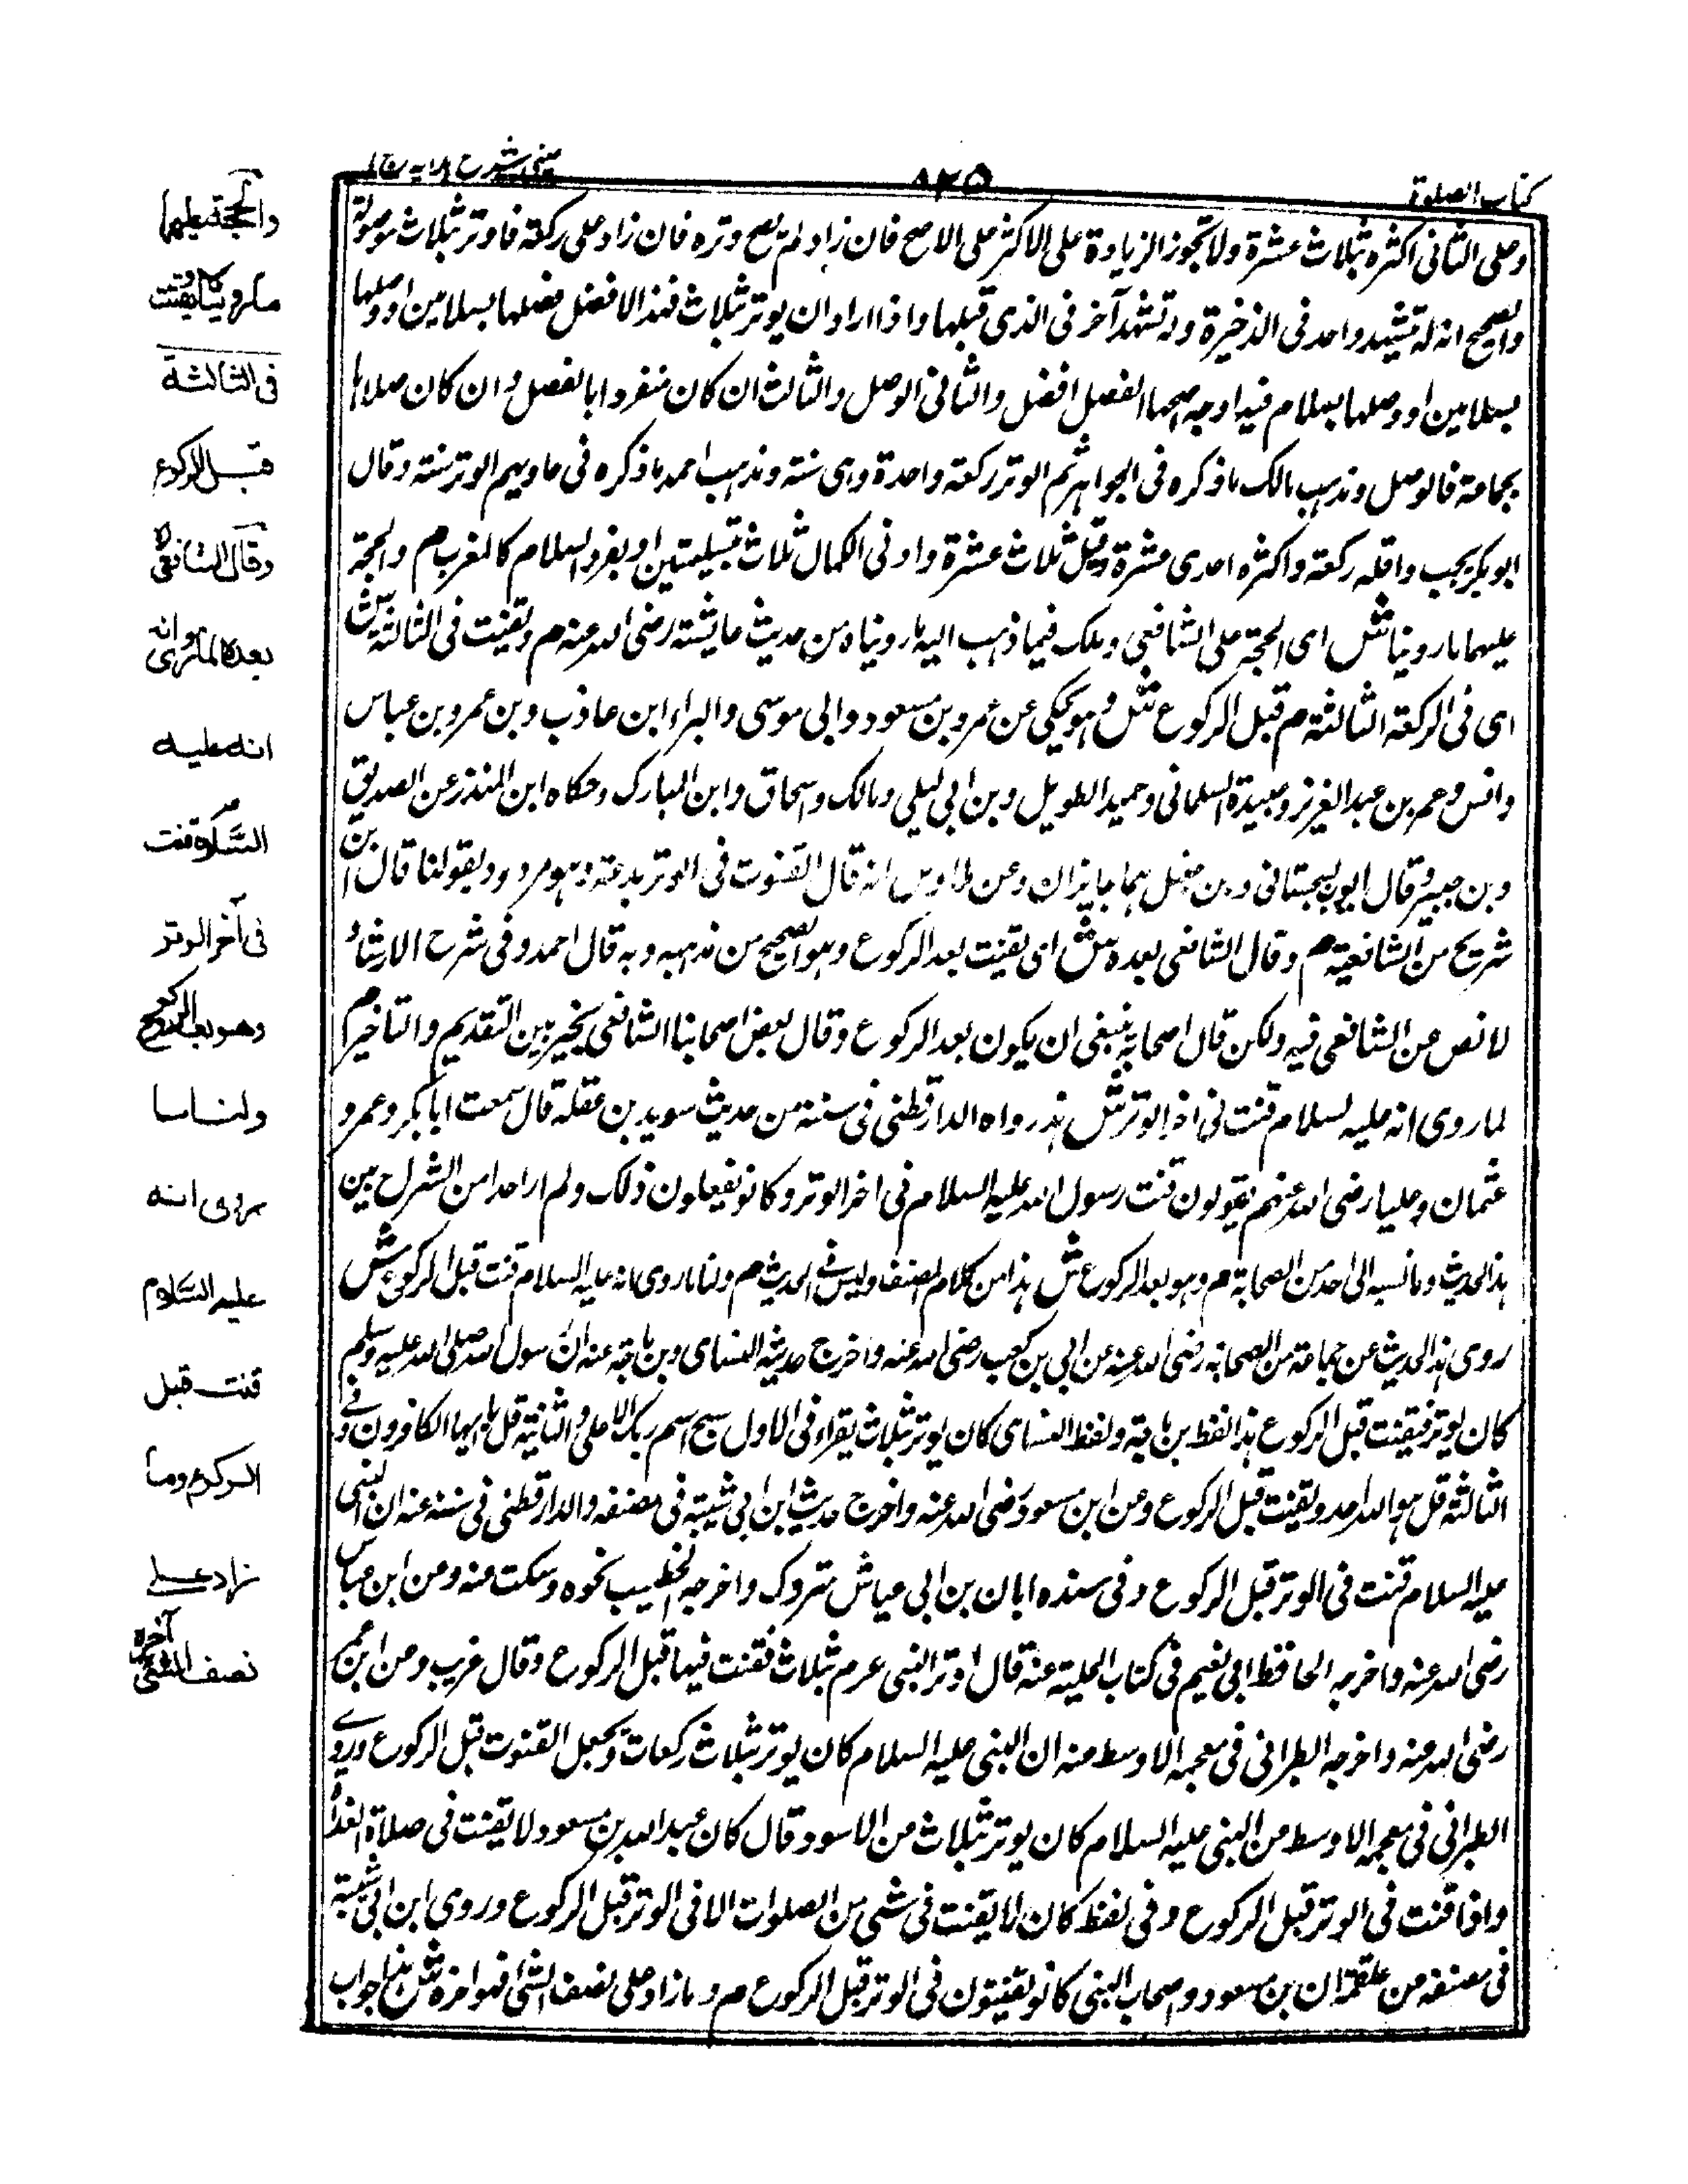 كتاب الصلوة
٨٢٥
عينى شرح هدايه ج ١
وعلى الثانى اكثره ثلاث عشرة ولا تجوز الزيادة على الاكثر على الاصح فان زاد لم يصح وتره فان زاد على ركعة فاوتر بثلاث موصولة
والصحيح انه له تشهد واحد فى الذخيرة وله تشهد آخر فى الذى قبلها واذا اراد ان يوتر بثلاث فهذ الافضل فصلها بسلامين او وصلها
بسلامين او وصلها بسلام فيه اوجه اصحها الفصل افضل والثانى الوصل والثالث ان كان منفردا بالفصل وان كان صلاها
بجماعة فالوصل ومذهب مالك ما ذكره فى الجواهر ثم الوتر ركعة واحدة وهى سنة ومذهب احمد ما ذكره فى حاويهم الوتر سنة وقال
ابو بكر يجب واقله ركعة واكثره احدى عشرة وقيل ثلاث عشرة وادنى الكمال ثلاث بتسليمتين او بفرد السلام كالمغرب م والحجة
عليهما ما روينا ش اى الحجة على الشافعى وملك فيما ذهب اليه ما رويناه من حديث عايشة رضى الله عنه م ويقنت فى الثالثة ش
اى فى الركعة الثالثة م قبل الركوع ش وهو يحكى عن عمر وبن مسعود وابى موسى والبراء ابن عاذب وبن عمر وبن عباس
وانس وعمر بن عبد العزيز وعبيدة السلمانى وحميد الطويل وبن ابى ليلى ومالك واسحاق وابن المبارك وحكاه ابن المنذر عن الصديق
وبن جبير وقال ايوب السجستانى وبن حنبل هما جايزان وعن طاوس انه قال القنوت فى الوتر بدعة وهو مردود وبقولنا قال ابن
شريح من الشافعية م وقال الشافعى بعده ش اى يقنت بعد الركوع وهو الصحيح من مذهبه وبه قال احمد وفى شرح الارشاد
لا نص عن الشافعى فيه ولكن قال اصحابه ينبغى ان يكون بعد الركوع وقال بعض اصحابنا الشافعى يخير بين التقديم والتاخير م
لما روى انه عليه لسلام قنت فى اخر الوتر ش هذ رواه الدارقطنى فى سننه من حديث سويد بن غفلة قال سمعت ابا بكر وعمر و
عثمان وعليا رضى الله عنهم يقولون قنت رسول الله عليه السلام فى اخر الوتر وكانو يفعلون ذلك ولم ار احدا من الشراح بين
هذ الحديث وما نسبه الى احد من الصحابة م وهو بعد الركوع ش هذا من كلام المصنف وليس فى الحديث م ولنا ما روى انه عليه السلام قنت قبل الركوع ش
روى هذ الحديث عن جماعة من الصحابه رضى الله عنه عن ابى بن كعب رضى الله عنه واخرج حديثه النساى وبن ماجه عنه ان رسول الله صلى الله عليه وسلم
كان يوتر فيقنت قبل الركوع هذ الفظ بن ماجه ولفظ النساى كان يوتر بثلاث يقراء فى الاول سبح اسم ربك الاعلى والثانية قل يا ايها الكافرون وفى
الثالثة قل هو الله احد ويقنت قبل الركوع وعن ابن مسعود رضى الله عنه واخرج حديث ابن ابى شيبة فى مصنفه والدارقطنى فى سننه عنه ان النبى
عليه السلام قنت فى الوتر قبل الركوع وفى سنده ابان بن ابى عياش متروك واخرجه الخطيب نحوه وسكت منه وعن ابن عباس
رضى الله عنه واخرجه الحافظ ابى نعيم فى كتاب الحلية عنه قال اوتر النبى عرم بثلاث فقنت فيها قبل الركوع وقال غريب وعن ابن عمر
رضى الله عنه واخرجه الطبرانى فى معجمه الاوسط عنه ان النبى عليه السلام كان يوتر بثلاث ركعات ويجعل القنوت قبل الركوع وروى
الطبرانى فى معجمه الاوسط من النبى عليه السلام كان يوتر بثلاث من الاسود قال كان عبد الله بن مسعود لا يقنت فى صلاة الغداة
واذا قنت فى الوتر قبل الركوع وفى لفظ كان لا يقنت فى شى من الصلوات الا فى الوتر قبل الركوع وروى ابن ابى شيبة
فى مصنفه عن علقمة ان بن مسعود واصحاب النبى كانو يقنتون فى الوتر قبل الركوع م وما زاد على نصف الشى فهو اخره ش هذا جواب
والحجة عليهما
ما روينا ويقنت
فى الثالثة
قبل الركوع
وقال الشافعى
بعده لما روى انه
انه عليه
السلام قنت
فى آخر الوتر
وهو بعد الركوع
ولنا ما
روى انه
عليه السلام
قنت قبل
الركوع وما
زاد على
نصف الشى آخره